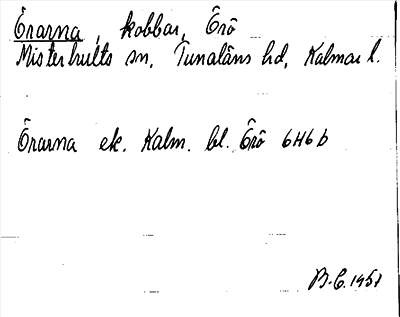 Örarna, kobbar, Örö
Misterhults sn, Tunaläns hd, Kalmar l.
Örarna ek. Kalm. bl. Örö 6H6b
B.C. 1951